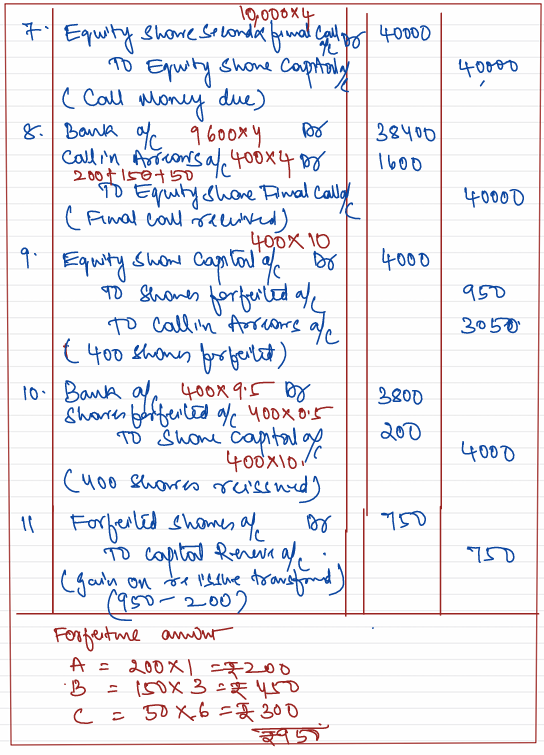 10,000×4
7. Equity Share Second & final Call a/c Dr 40000
To Equity Share Capital a/c 40000
( Call Money due)
8. Bank a/c 9600×4 Dr 38400
Call in Arrears a/c 400×4 Dr 1600
200+150+50
To Equity Share Final Call a/c 40000
( Final call received)
400×10
9. Equity Share Capital a/c Dr 4000
To Shares forfeited a/c 950
To Call in Arrears a/c 3050
( 400 shares forfeited)
10. Bank a/c 400×9.5 Dr 3800
Shares forfeited a/c 400×0.5 200
To Share Capital a/c 4000
400×10
(400 shares reissued)
11 Forfeited shares a/c Dr 750
To Capital Reserve a/c . 750
(gain on re issue transferred)
(950-200)
Forfeiture amount
A = 200×1 = ₹200
B = 150×3 = ₹ 450
C = 50×6 = ₹ 300
₹950